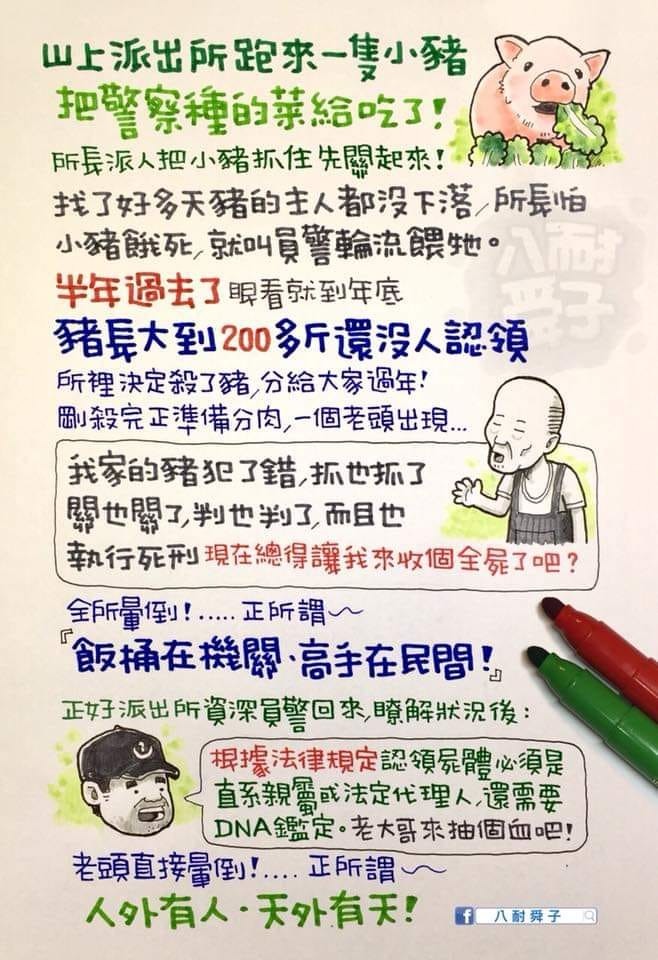 山上派出所跑來一隻小豬
把警察種的菜給吃了!
所長派人把小豬抓住先關起來!
找了好多天豬的主人都没下落,所長怕
小豬餓死,就叫員警輪流餵牠。
八耐
舜子
半年過去了 眼看就到年底
豬長大到200多斤還没人認領
所裡決定殺了豬,分給大家過年!
剛殺完正準備分肉,一個老頭出現...
我家的豬犯了錯,抓也抓了
關也關了,判也判了,而且也
執行死刑 現在總得讓我來收個全屍了吧?
全所暈倒!..... 正所謂~
『飯桶在機關、高手在民間!』
正好派出所資深員警回來,瞭解狀況後:
根據法律規定認領屍體必須是
直系親屬或法定代理人,還需要
DNA鑑定。老大哥來抽個血吧!
老頭直接暈倒!.... 正所謂~
人外有人·天外有天!
f 八耐舜子